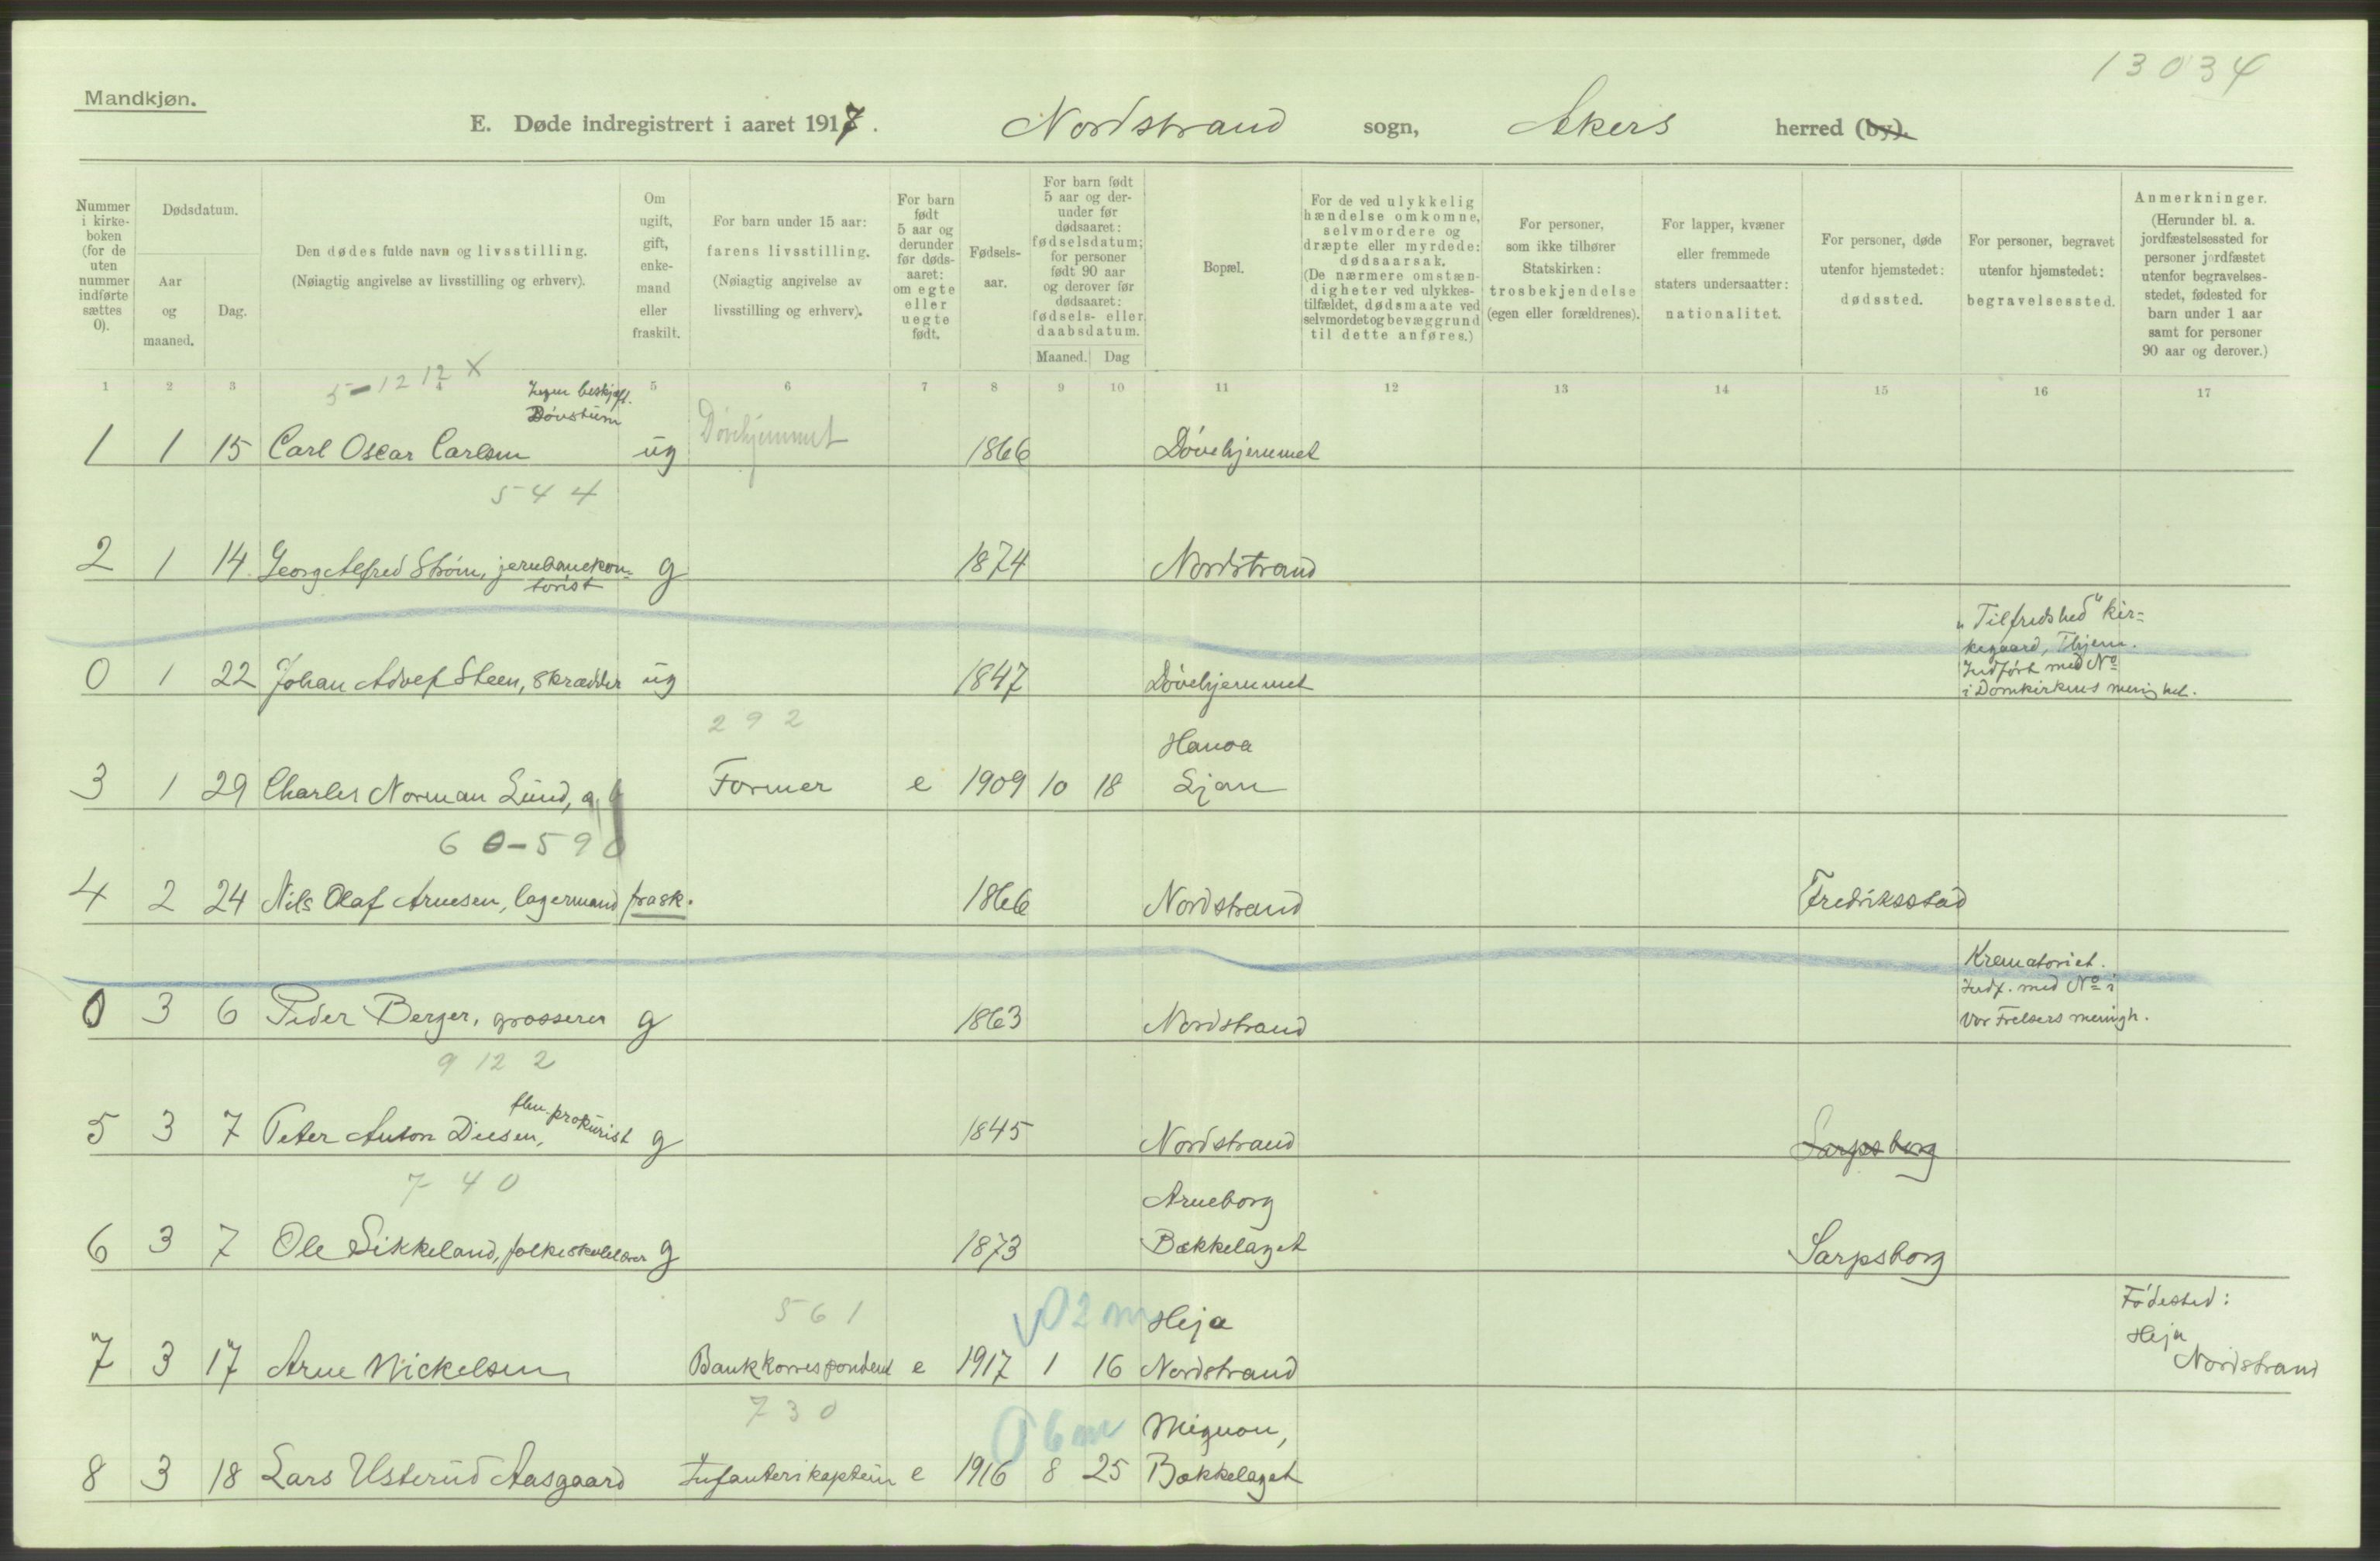 13034
Mandkjøn.
E. Døde indregistrert i aaret 1917. Nordstrand sogn, Akers herred (by).
Nummer i kirke-boken (for de uten nummer indførte sættes 0).
Dødsdatum.
Aar og maaned.
Dag.
Den dødes fulde navn og livsstilling.
(Nøiagtig angivelse av livsstilling og erhverv).
Om ugift, gift, enke-mand eller fraskilt.
For barn under 15 aar:
farens livsstilling.
(Nøiagtig angivelse av livsstilling og erhverv).
For barn født 5 aar og derunder før døds-aaret: om egte eller uegte født.
Fødsels-aar.
For barn født 5 aar og der-under før dødsaaret: fødselsdatum; for personer født 90 aar og derover før dødsaaret: fødsels- eller daabsdatum.
Maaned. Dag
Bopæl.
For de ved ulykkelig hændelse omkomne, selvmordere og dræpte eller myrdede: dødsaarsak.
(De nærmere omstæn-digheter ved ulykkes-tilfældet, dødsmaate ved selvmordet og bevæggrund til dette anføres.)
For personer, som ikke tilhører Statskirken: trosbekjendelse (egen eller forældrenes).
For lapper, kvæner eller fremmede staters undersaatter: nationalitet.
For personer, døde utenfor hjemstedet: dødssted.
For personer, begravet utenfor hjemstedet: begravelsessted.
Anmerkninger.
(Herunder bl. a. jordfæstelsessted for personer jordfæstet utenfor begravelses-stedet, fødested for barn under 1 aar samt for personer 90 aar og derover.)
1 2 3 4 5 6 7 8 9 10 11 12 13 14 15 16 17
5-12 12 X
Ingen beskjæft.
Døvstum
1 1 15 Carl Oscar Carlsen ug Døvehjemmet 1866 Døvehjemmet
544
2 1 14 Georg Alfred Strøm, jernbanekon- g 1874 Nordstrand
torist
"Tilfredshed" kir-
kegaard, Thjem.
Indført med No
i Domkirkens menighet.
0 1 22 Johan Adolf Steen, skrædder ug 1847 Døvehjemmet
292
Hanoa
3 1 29 Charles Norman Lund, Former e 1909 10 18 Ljan
60-590
4 2 24 Nils Olaf Arnesen, lagermand frask. 1866 Nordstrand Fredriksstad
Krematoriet.
Indf. med No i
Vor Frelsers menigh.
0 3 6 Peder Berger, grosserer g 1863 Nordstrand
9 12 2
fhv. prokurist
5 3 7 Peter Anton Diesen, g 1845 Nordstrand Sarpsborg
740
Arneborg
6 3 7 Ole Sikkeland, folkeskolelærer g 1873 Bækkelaget Sarpsborg
561
02 m
Heja
Fødested:
Heja
Nordstrand
7 3 17 Arne Mickelsen Bankkorrespondent e 1917 1 16 Nordstrand
730
06 m
Mignon,
8 3 18 Lars Usterud Aasgaard Infanterikaptein e 1916 8 25 Bækkelaget